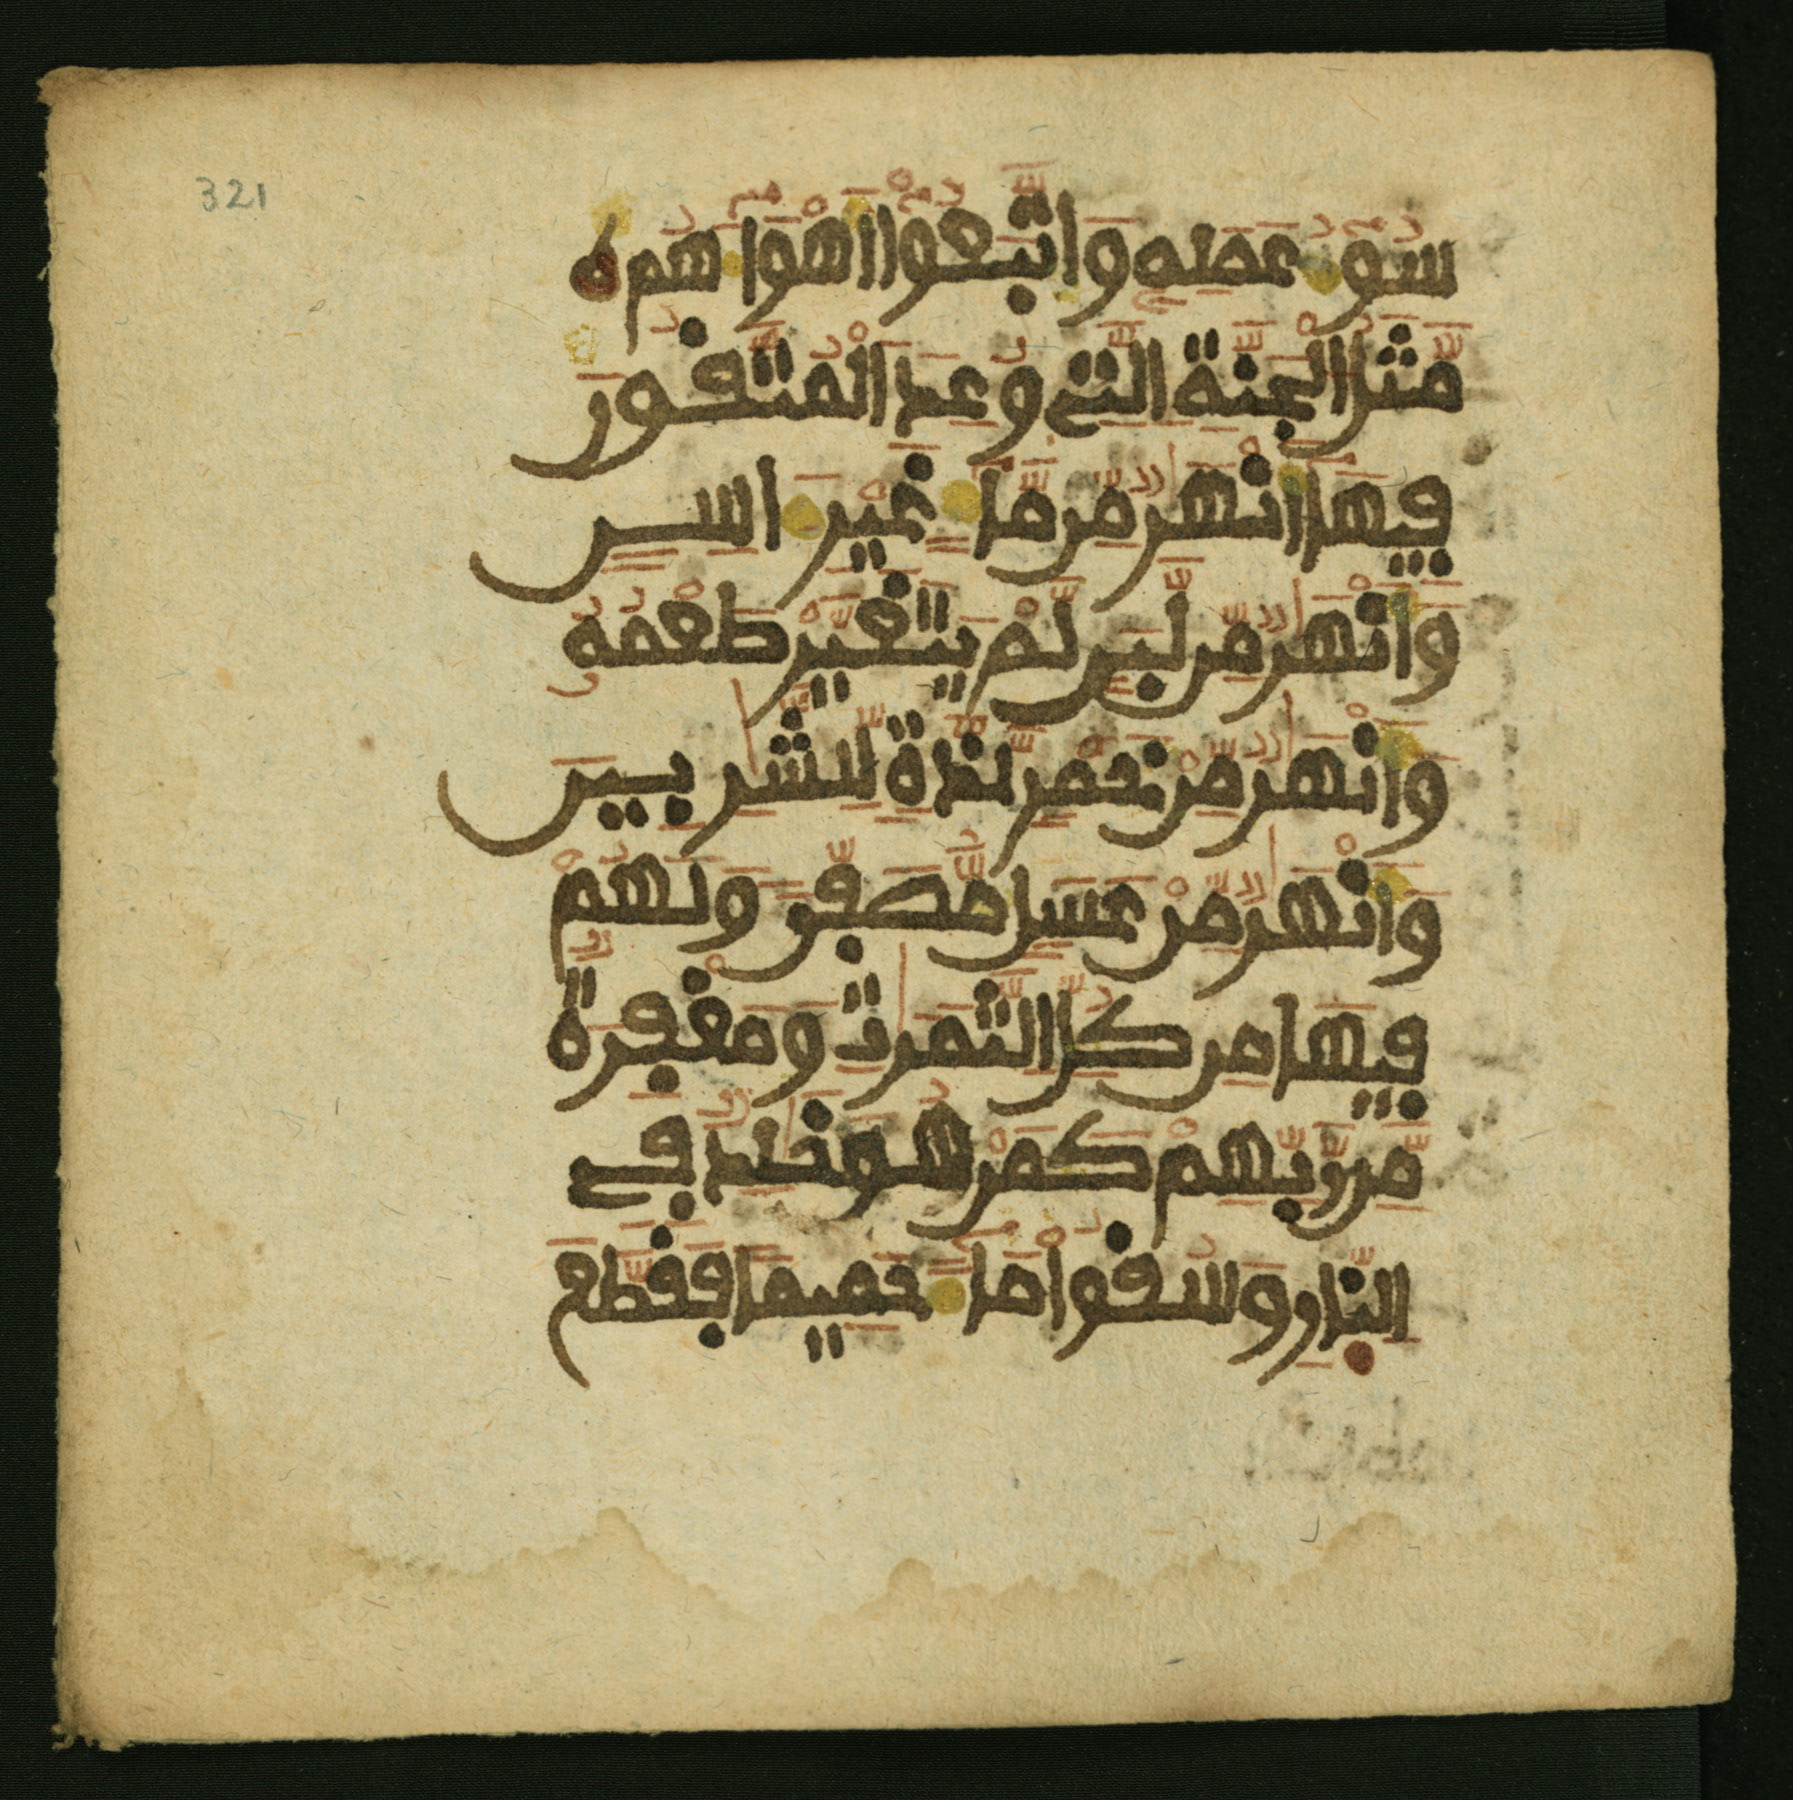 321
سُوٓءُ عَمَلِهِۦ وَاتَّبَعُوٓا أَهْوَآءَهُم
مَّثَلُ الْجَنَّةِ الَّتِے وُعِدَ الْمُتَّقُونَ
فِيهَآ أَنْهَٰرٌ مِّن مَّآءٍ غَيْرِ ءَاسِنٍ
وَأَنْهَٰرٌ مِّن لَّبَنٍ لَّمْ يَتَغَيَّرْ طَعْمُهُۥ
وَأَنْهَٰرٌ مِّنْ خَمْرٍ لَّذَّةٍ لِّلشَّٰرِبِينَ
وَأَنْهَٰرٌ مِّنْ عَسَلٍ مُّصَفًّى وَلَهُمْ
فِيهَا مِن كُلِّ الثَّمَرَٰتِ وَمَغْفِرَةٌ
مِّن رَّبِّهِمْ كَمَنْ هُوَ خَٰلِدٌ فِے
النّ۪ارِ وَسُقُوا مَآءً حَمِيمًا فَقَطَّعَ